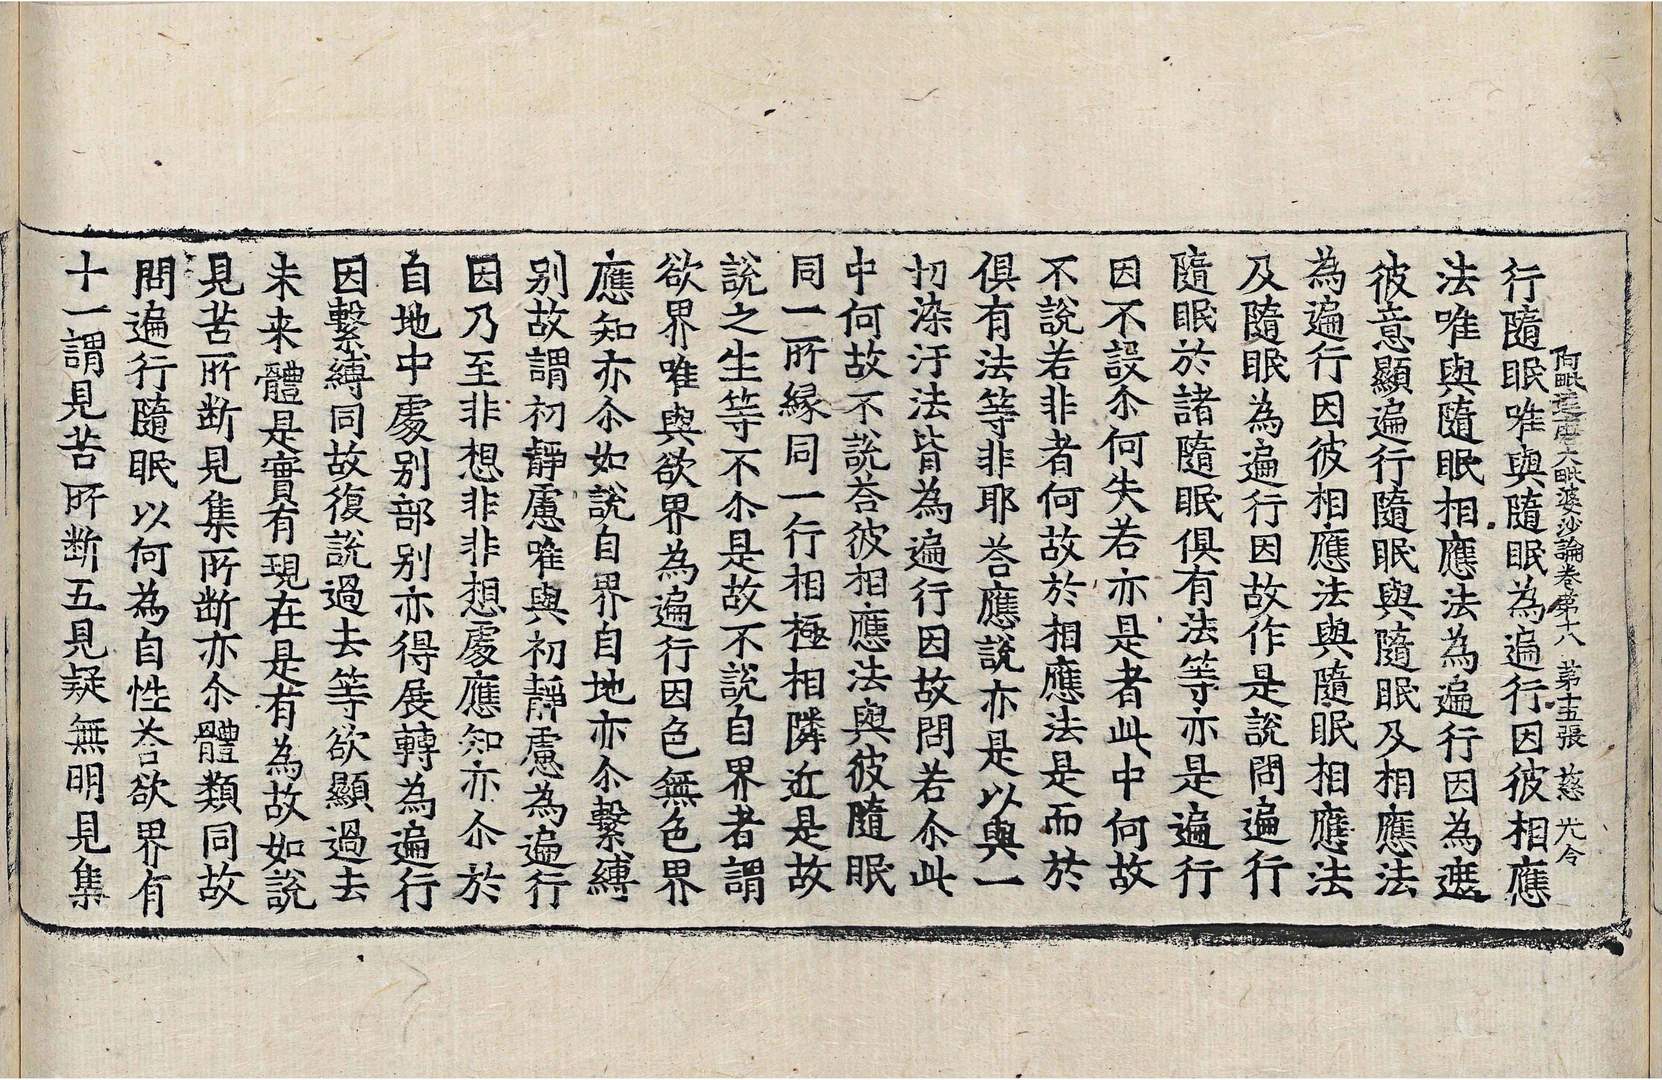 阿毗達磨大毗婆沙論卷第十八 第十五張 慈 光令
行隨眠唯與隨眠為遍行因彼相應
法唯與隨眠相應法為遍行因為遮
彼意顯遍行隨眠與隨眠及相應法
為遍行因彼相應法與隨眠相應法
及隨眠為遍行因故作是說問遍行
隨眠於諸隨眠俱有法等亦是遍行
因不設尒何失若亦是者此中何故
不說若非者何故於相應法是而於
俱有法等非耶荅應說亦是以與一
切染汙法皆為遍行因故問若尒此
中何故不說荅彼相應法與彼隨眠
同一所緣同一行相極相隣近是故
說之生等不尒是故不說自界者謂
欲界唯與欲界為遍行因色無色界
應知亦尒如說自界自地亦尒繫縛
別故謂初靜慮唯與初靜慮為遍行
因乃至非想非非想處應知亦尒於
自地中處別部別亦得展轉為遍行
因繫縛同故復說過去等欲顯過去
未来體是實有現在是有為故如說
見苦所斷見集所斷亦尒體類同故
問遍行隨眠以何為自性荅欲界有
十一謂見苦所斷五見疑無明見集